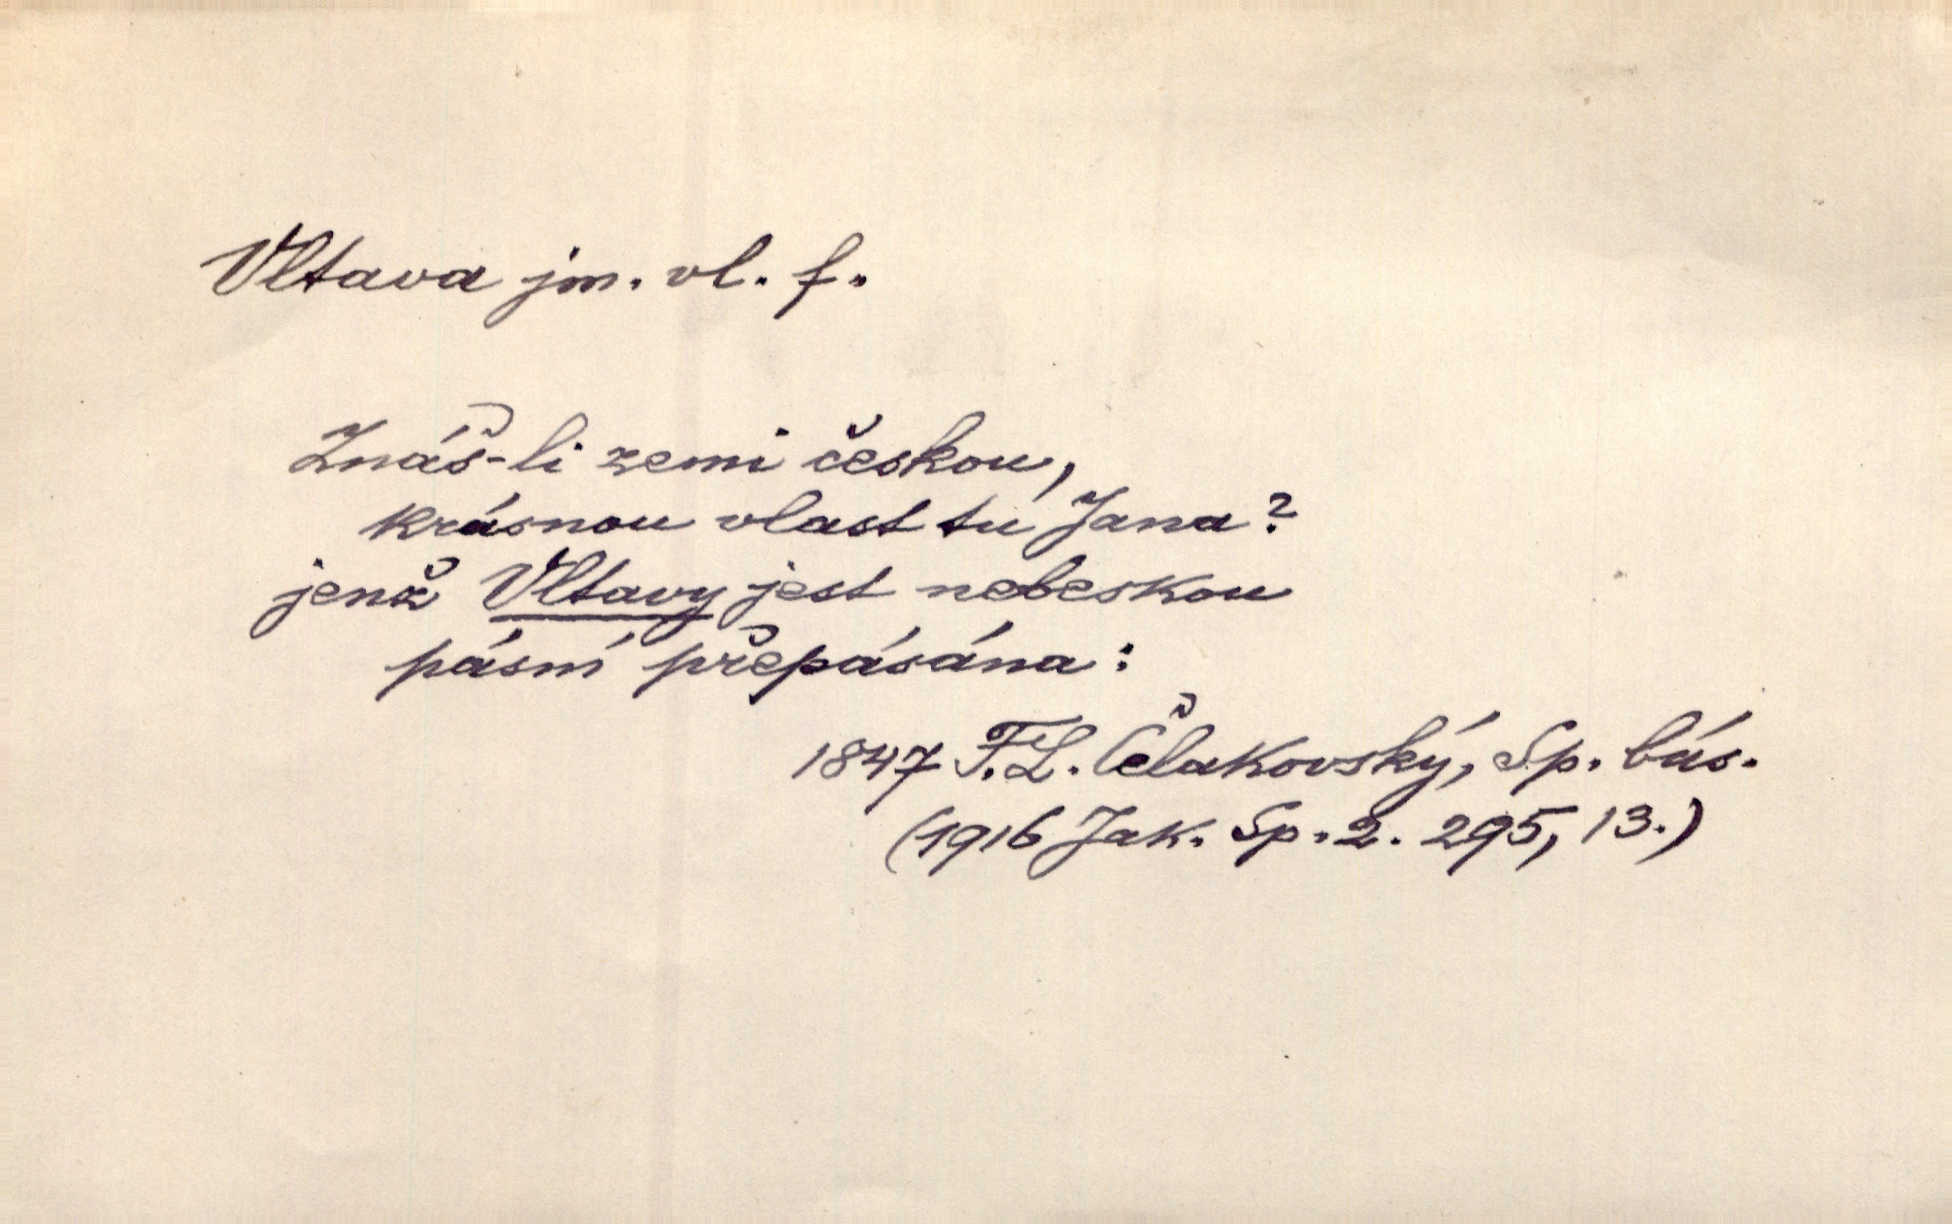 Vltava jm. vl. f.
Znáš-li zemi českou,
krásnou vlast tu Jana?
jenž Vltavy jest nebeskou
pásmí přepásána:
1847 F. L. Čelakovský, Sp. bás.
(1916 Jak. Sp. 2. 295, 13.)